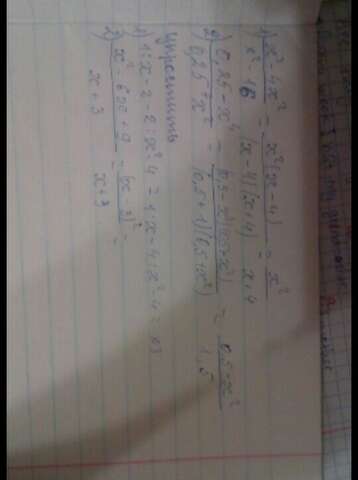 1) x³-4x²/x²-16 = x²(x-4)/(x-4)(x+4) = x²/x+4
2) 0,25-x⁴/0,25+x² = (0,5-x²)(0,5+x²)/(0,5+1)(0,5+x²) = 0,5-x²/1,5
Упростить
1) 1:x-2-2:x²-4=1:x-4:x²-4=
2) x²-6x+9/x+3 = (x-3)²/x+3 =